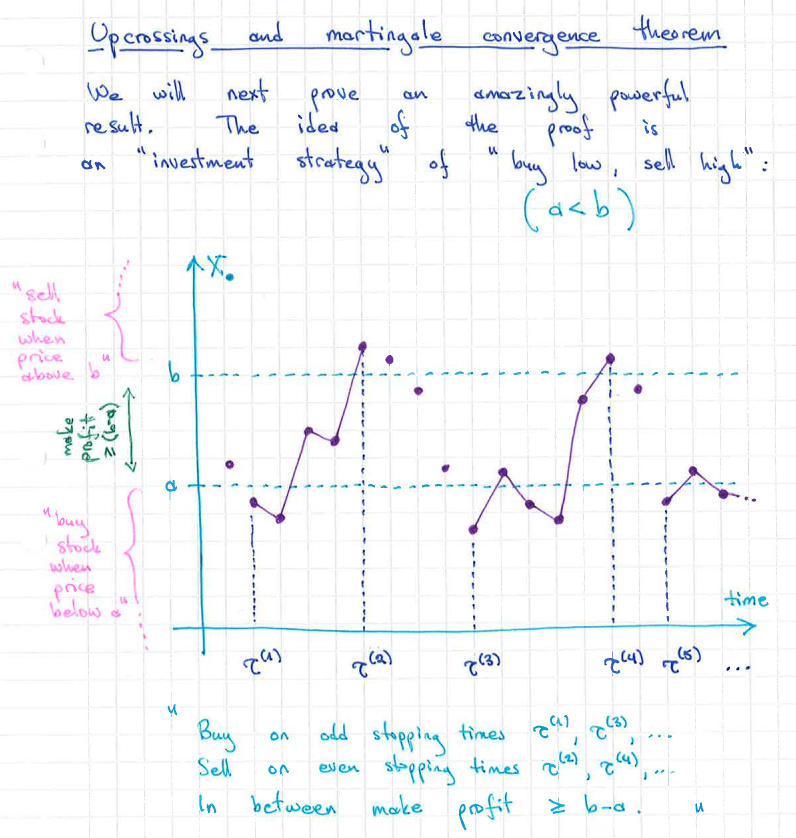 Upcrossings and martingale convergence theorem
We will next prove an amazingly powerful
result. The idea of the proof is
an "investment strategy" of "buy low, sell high":
(a<b)
X.
"sell
stock
when
price
above b"
b
make
profit
≥(b-a)
a
"buy
stock
when
price
below a"
time
τ⁽¹⁾ τ⁽²⁾ τ⁽³⁾ τ⁽⁴⁾ τ⁽⁵⁾ ...
"Buy on odd stopping times τ⁽¹⁾, τ⁽³⁾, ...
Sell on even stopping times τ⁽²⁾, τ⁽⁴⁾, ...
In between make profit ≥ b-a. "